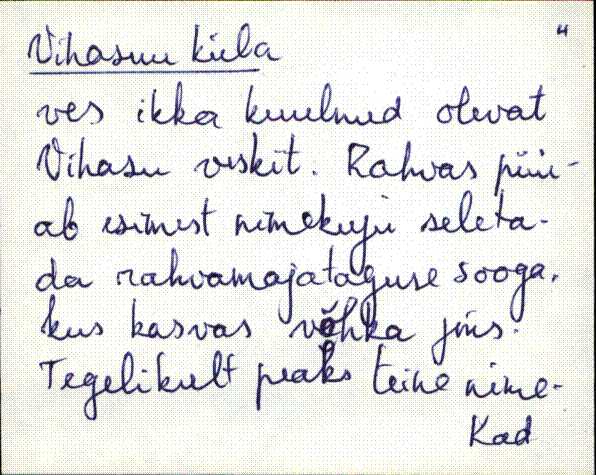 Vihasuu küla "
ves ikka kuulnud olevat
Vihasu veskit. Rahvas püü-
ab esimest nimekuju seleta-
da rahvamajataguse sooga,
kus kasvas võhka jms.
Tegelikult peaks teine nime-
kad